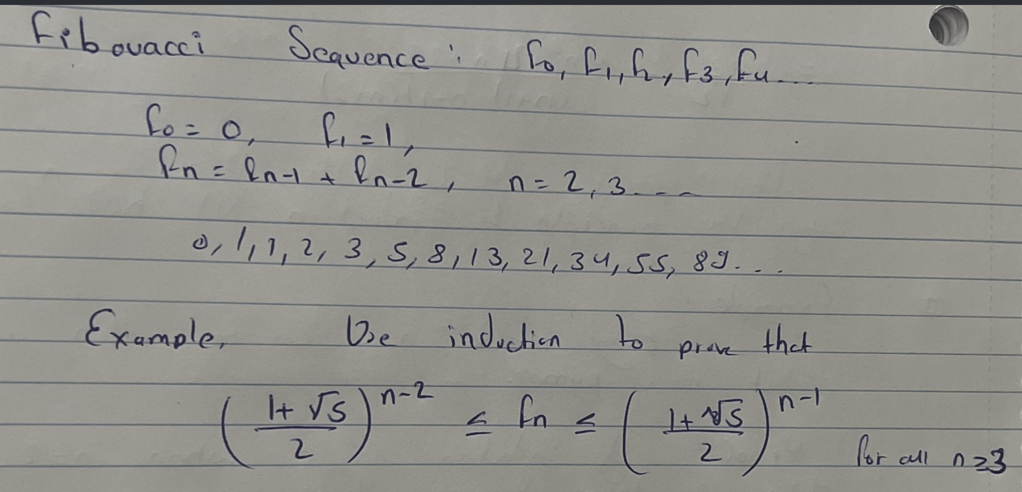 Fibonacci Sequence: f₀, f₁, f₂, f₃, f₄....
f₀ = 0, f₁ = 1,
fₙ = fₙ₋₁ + fₙ₋₂, n = 2, 3....
0, 1, 1, 2, 3, 5, 8, 13, 21, 34, 55, 89...
Example, Use induction to prove that
((1+√5)/2)ⁿ⁻² ≤ fₙ ≤ ((1+√5)/2)ⁿ⁻¹ for all n≥3